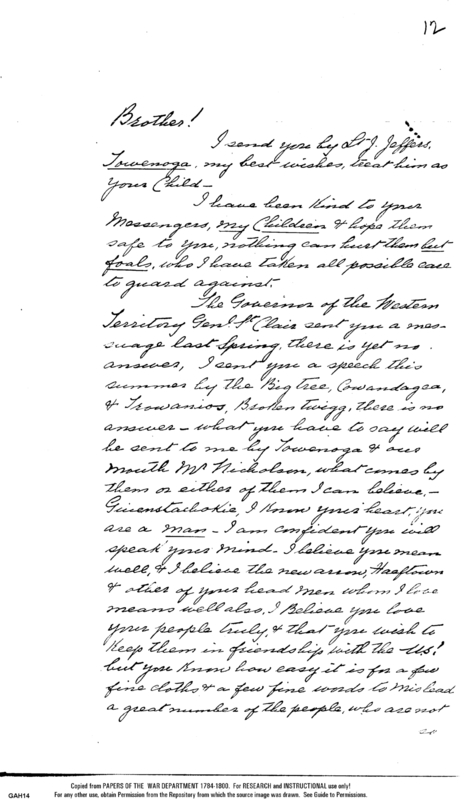 12
Brother!
I send you by Lt J. Jeffers.
Towenoga, my best wishes, treat him as
your Child –
I have been kind to your
Messengers, my Children & hope them
safe to you, nothing can hurt them but
fools, who I have taken all possible care
to guard against.
The Governor of the Western
Territory Genl. St Clair sent you a mes-
suage last Spring, there is yet no
answer, I sent you a speech this
summer by the Big tree, Cowandagea,
& Trowanios, Broken twigg, there is no
answer – what you have to say will
be sent to me by Towenoga & our
mouth Mr Nicholson, what comes by
them or either of them I can believe, –
I know your heart, you
are a man – I am confident you will
speak your mind – I believe you mean
well, & I believe the new arrow,
& other of your head men whom I love
means well also, I Believe you love
your people truly, & that you wish to
Keep them in friendship with the US!
but you know how easy it is for a few
fine cloths & a few fine words to mislead
a great number of the people, who are not
Copied from PAPERS OF THE WAR DEPARTMENT 1784-1800. For RESEARCH and INSTRUCTIONAL use only!
GAH14 For any other use, obtain Permission from the Repository from which the source image was drawn. See Guide to Permissions.